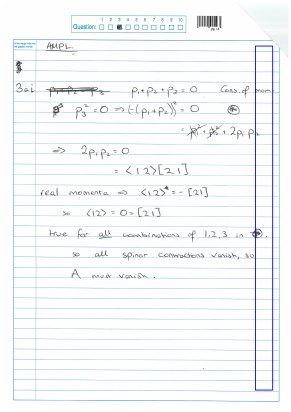 Question: 1 2 3 4 5 6 7 8 9 10
AMPL
3ai p₁+p₂+p₃ p₁+p₂+p₃ = 0 Cons. of mom
p₃² = 0 ⇒ (-(p₁+p₂))² = 0
= p₁² + p₂² + 2p₁p₂
⇒ 2p₁p₂ = 0
= ⟨12⟩[21]
real momenta ⇒ ⟨12⟩* = -[21]
so ⟨12⟩ = 0 = [21]
true for all combinations of 1,2,3 in
so all spinor contractions vanish, so
A must vanish.